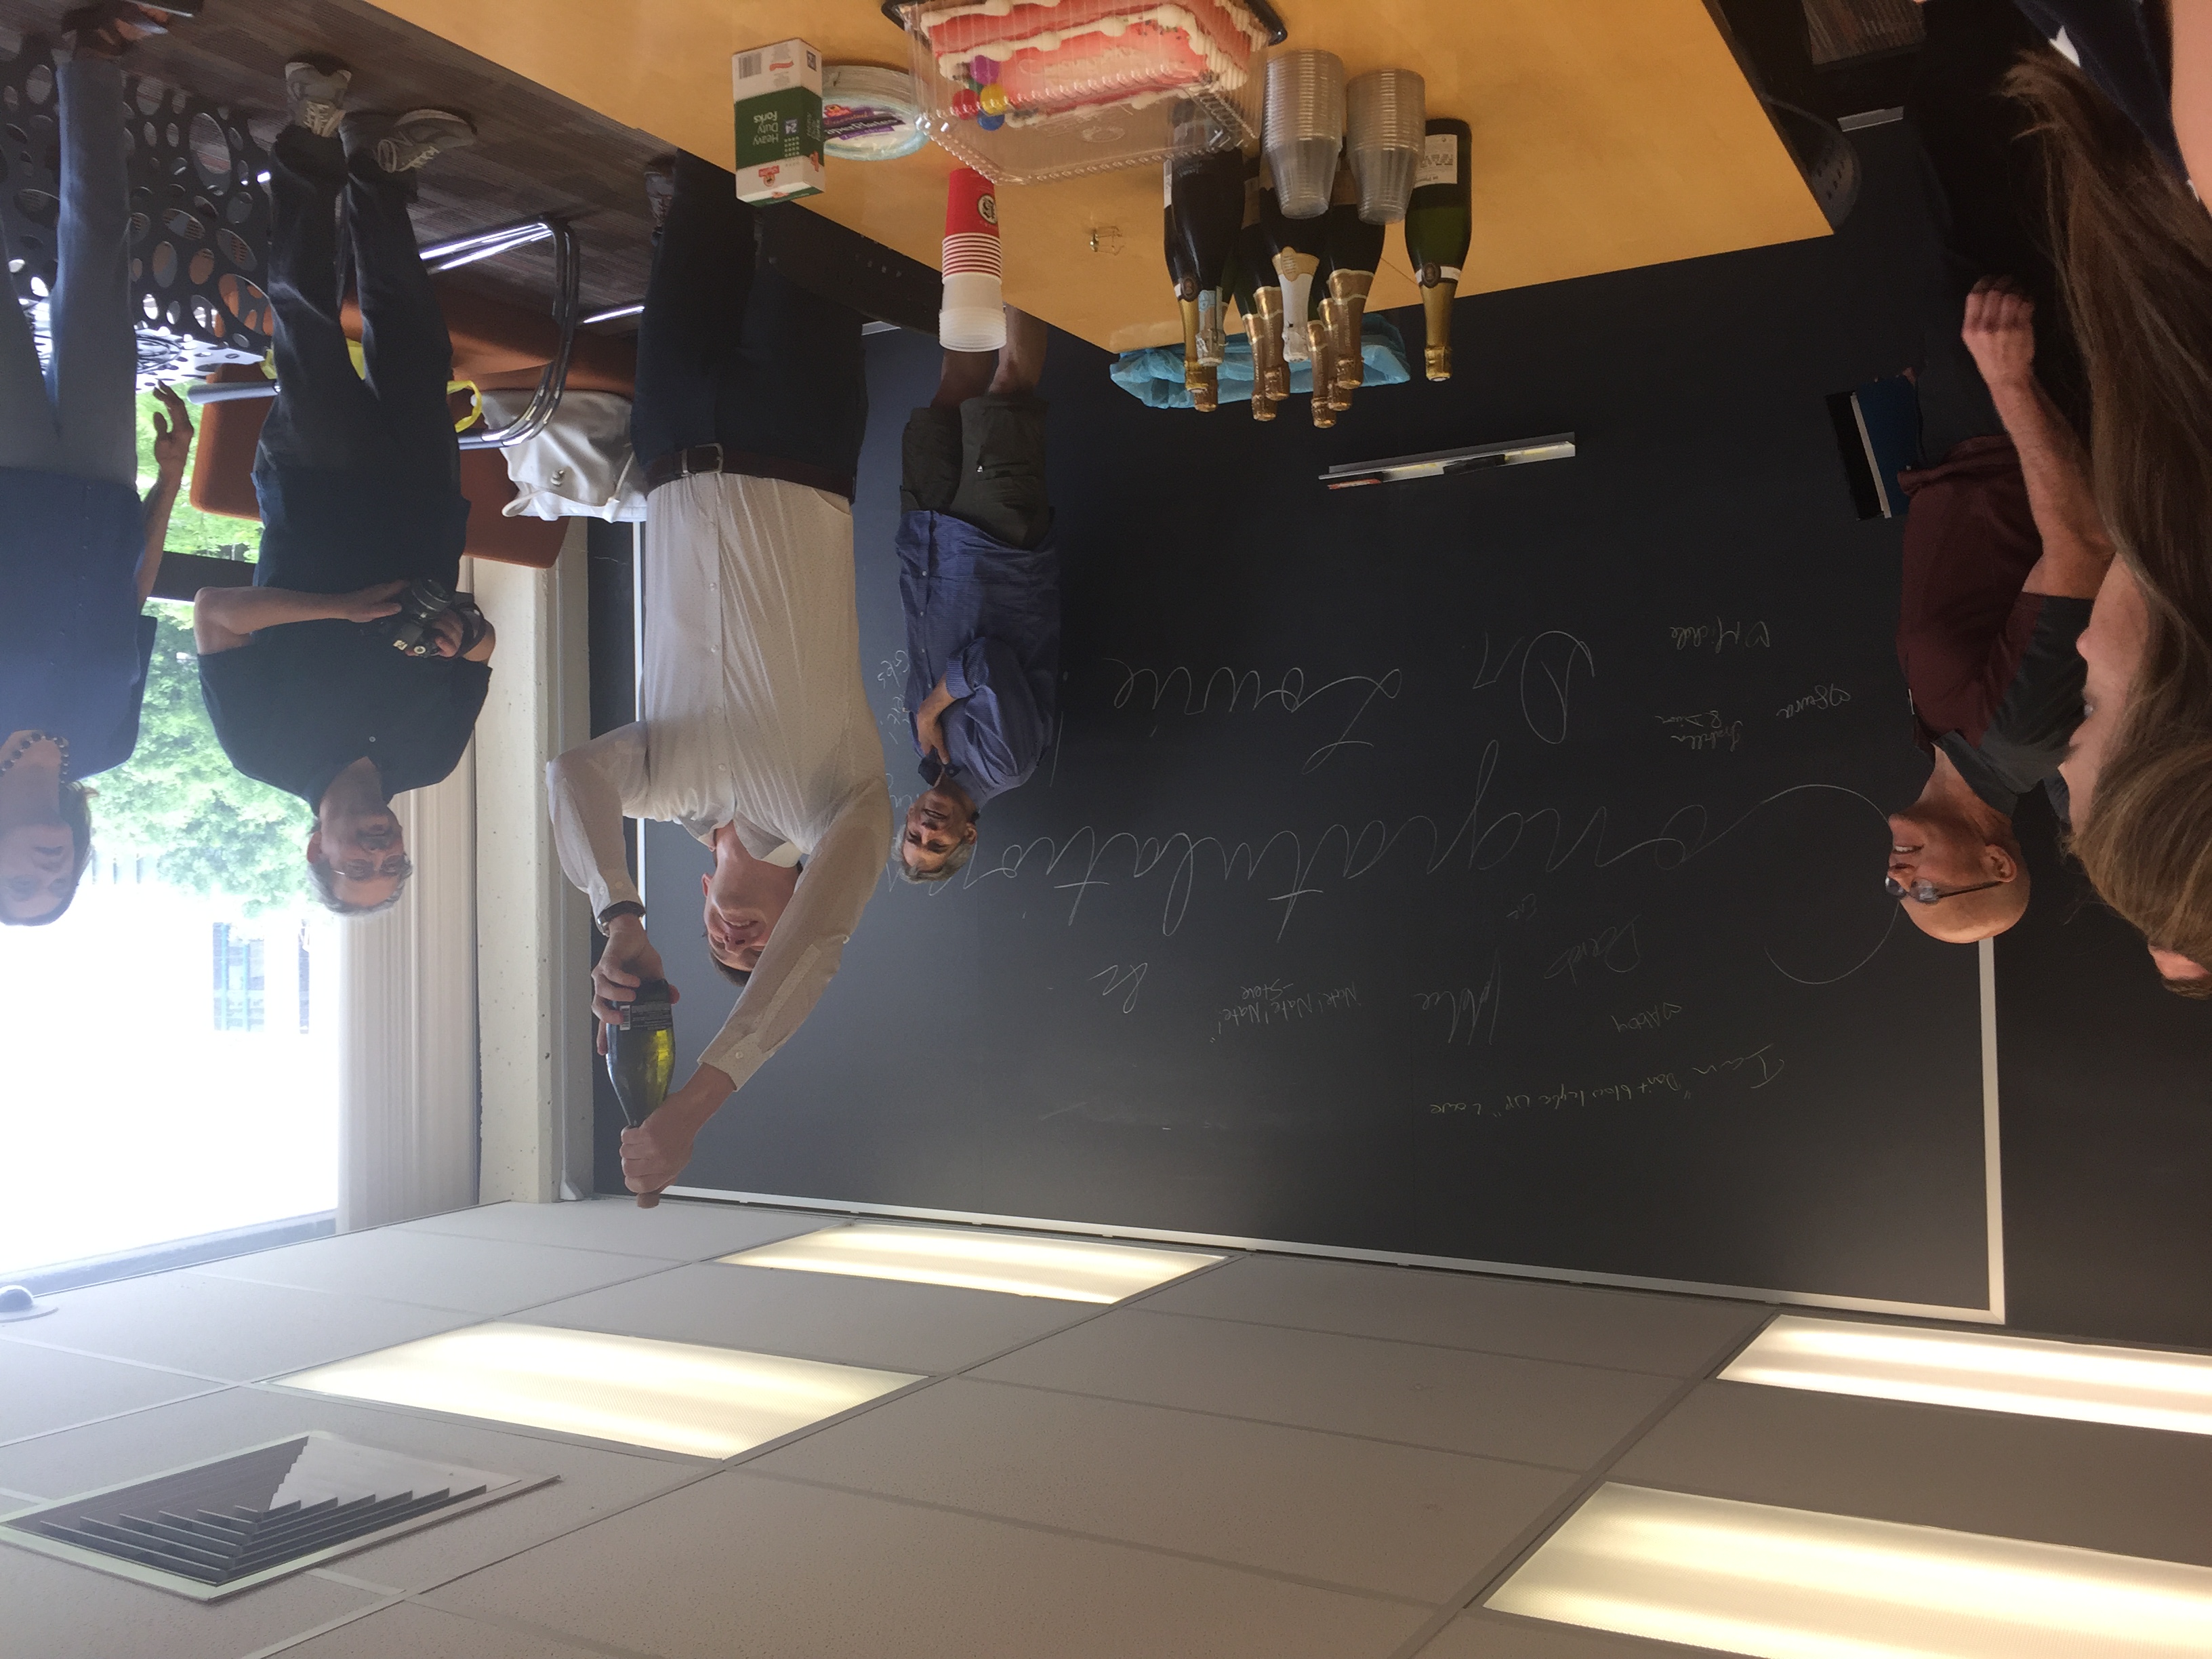 Ian "Don't blow kyle up" Lowe
♡Abby
Nate! Nate! Nate!"
-Steve
&
Derek
Congratulations
Dr. Lourie!
♡Sara
Isabella
& Dixon
♡Michele
Giles
24
Heavy
Duty
Forks